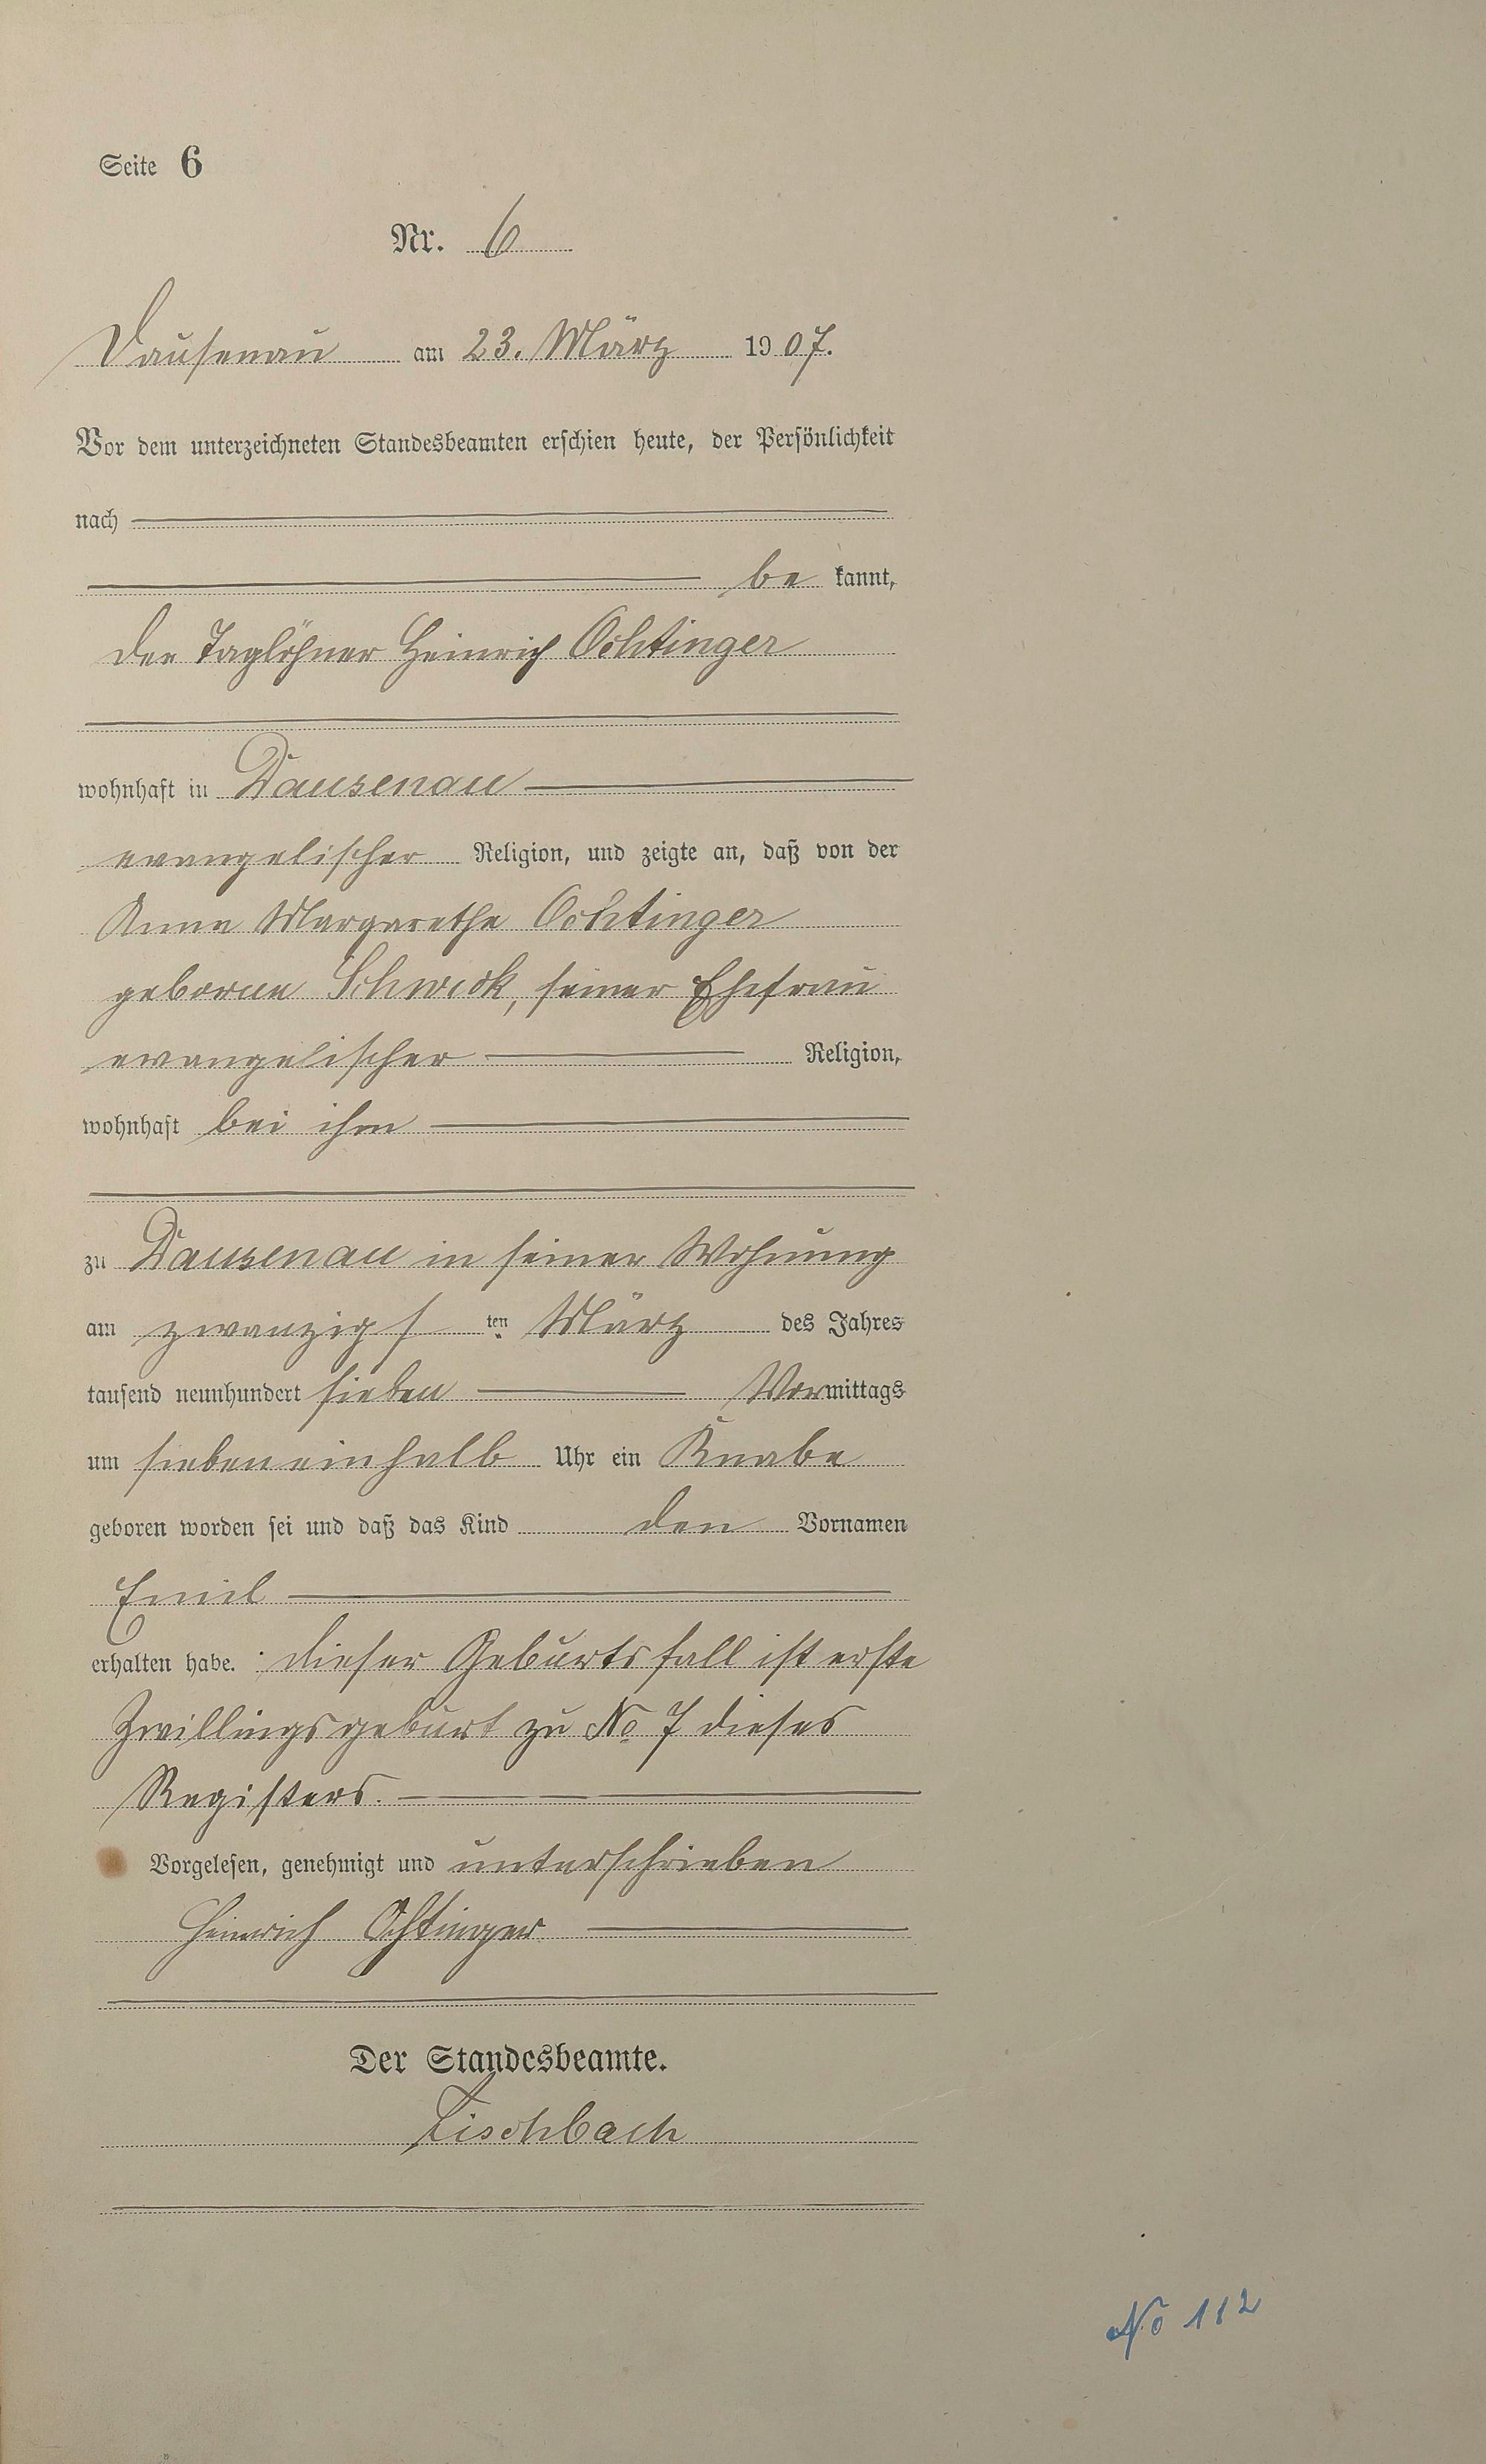 Seite 6
Nr. 6
Dausenau am 23. März 1907.
Vor dem unterzeichneten Standesbeamten erschien heute, der Persönlichkeit
nach
be kannt,
der Taglöhner Heinrich Ochtinger
wohnhaft in Dausenau
evangelischer Religion, und zeigte an, daß von der
Anna Margarethe Ochtinger
geborne Schwenk, seiner Ehefrau
evangelischer Religion,
wohnhaft bei ihm
zu Dausenau in seiner Wohnung
am zwanzigs ten März des Jahres
tausend neunhundert sieben Vormittags
um siebeneinhalb Uhr ein Knabe
geboren worden sei und daß das Kind den Vornamen
Emil
erhalten habe. Dieser Geburtsfall ist erste
Zwillingsgeburt zu No 7 dieses
Registers.
Vorgelesen, genehmigt und unterschrieben
Heinrich Ochtinger
Der Standesbeamte.
Fischbach
No 112